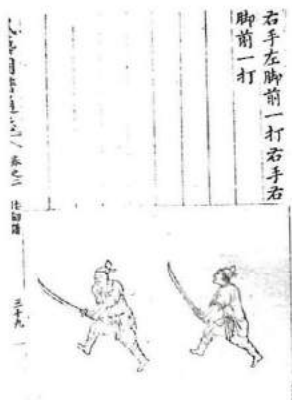 右手左脚前一打右手右
脚前一打
卷之二
三十九